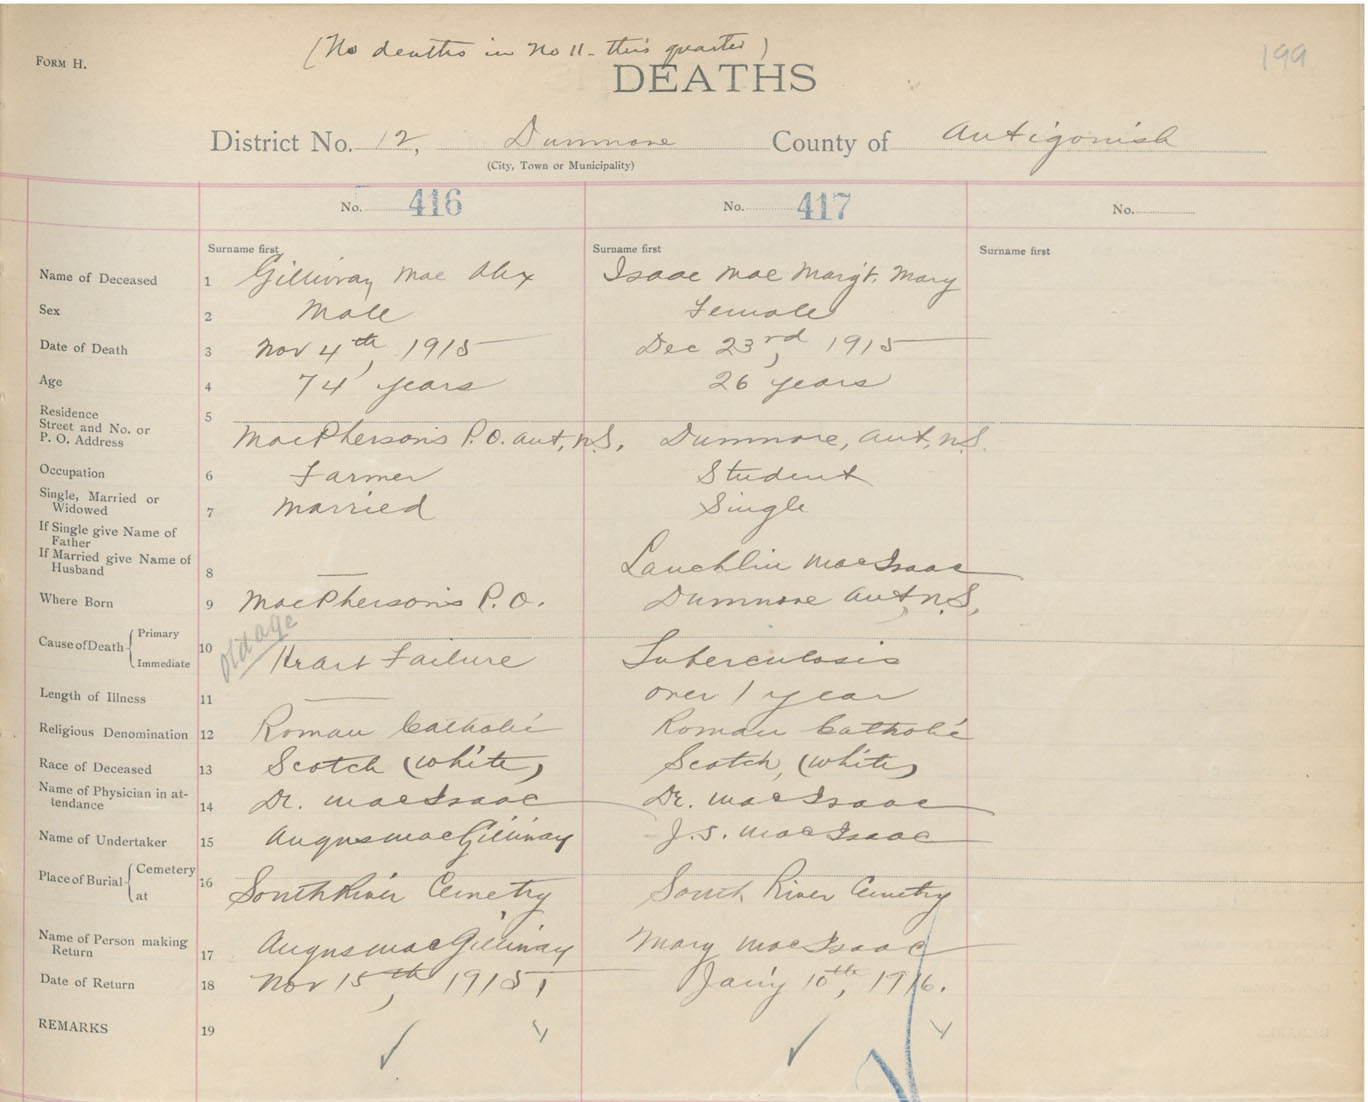 (No deaths in No 11 - this quarter)
199
FORM H.
DEATHS
District No. 12, Dunmore County of Antigonish
(City, Town or Municipality)
No. 416 No. 417 No.
Surname first Surname first Surname first
Name of Deceased 1 Gillivray Mac Alex Isaac Mac Margt. Mary
Sex 2 Male Female
Date of Death 3 Nov 4th, 1915 Dec 23rd, 1915
Age 4 74 years 26 years
Residence
Street and No. or
P. O. Address 5 MacPherson's P.O. Ant, N.S. Dunmore, Ant, N.S.
Occupation 6 Farmer Student
Single, Married or
Widowed 7 Married Single
If Single give Name of
Father
If Married give Name of
Husband 8 — Lauchlin MacIsaac
Where Born 9 MacPherson's P.O. Dunmore Ant, N.S.
old age
Cause of Death { Primary Immediate 10 Heart Failure Tuberculosis
Length of Illness 11 — over 1 year
Religious Denomination 12 Roman Catholic Roman Catholic
Race of Deceased 13 Scotch (White) Scotch, (White)
Name of Physician in at-
tendance 14 Dr. MacIsaac Dr. MacIsaac
Name of Undertaker 15 Angus MacGillivray J.S. MacIsaac
Place of Burial { Cemetery at 16 South River Cemetry South River Cemetry
Name of Person making
Return 17 Angus MacGillivray Mary MacIsaac
Date of Return 18 Nov 15th, 1915, Jan'y 10th, 1916.
REMARKS 19